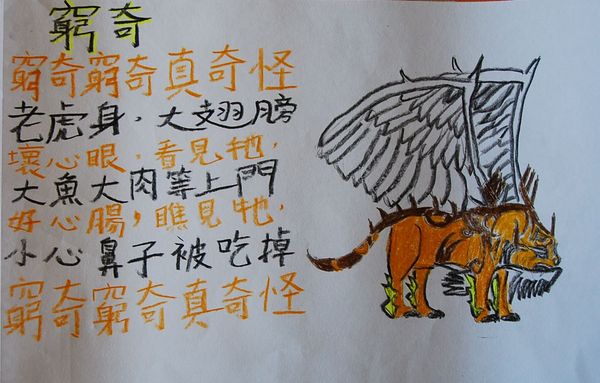 窮奇
窮奇窮奇真奇怪
老虎身，大翅膀
壞心眼，看見牠，
大魚大肉等上門
好心腸，瞧見牠，
小心鼻子被吃掉
窮奇窮奇真奇怪